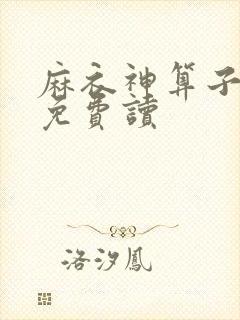 麻衣神算子
免費讀
洛汐鳳